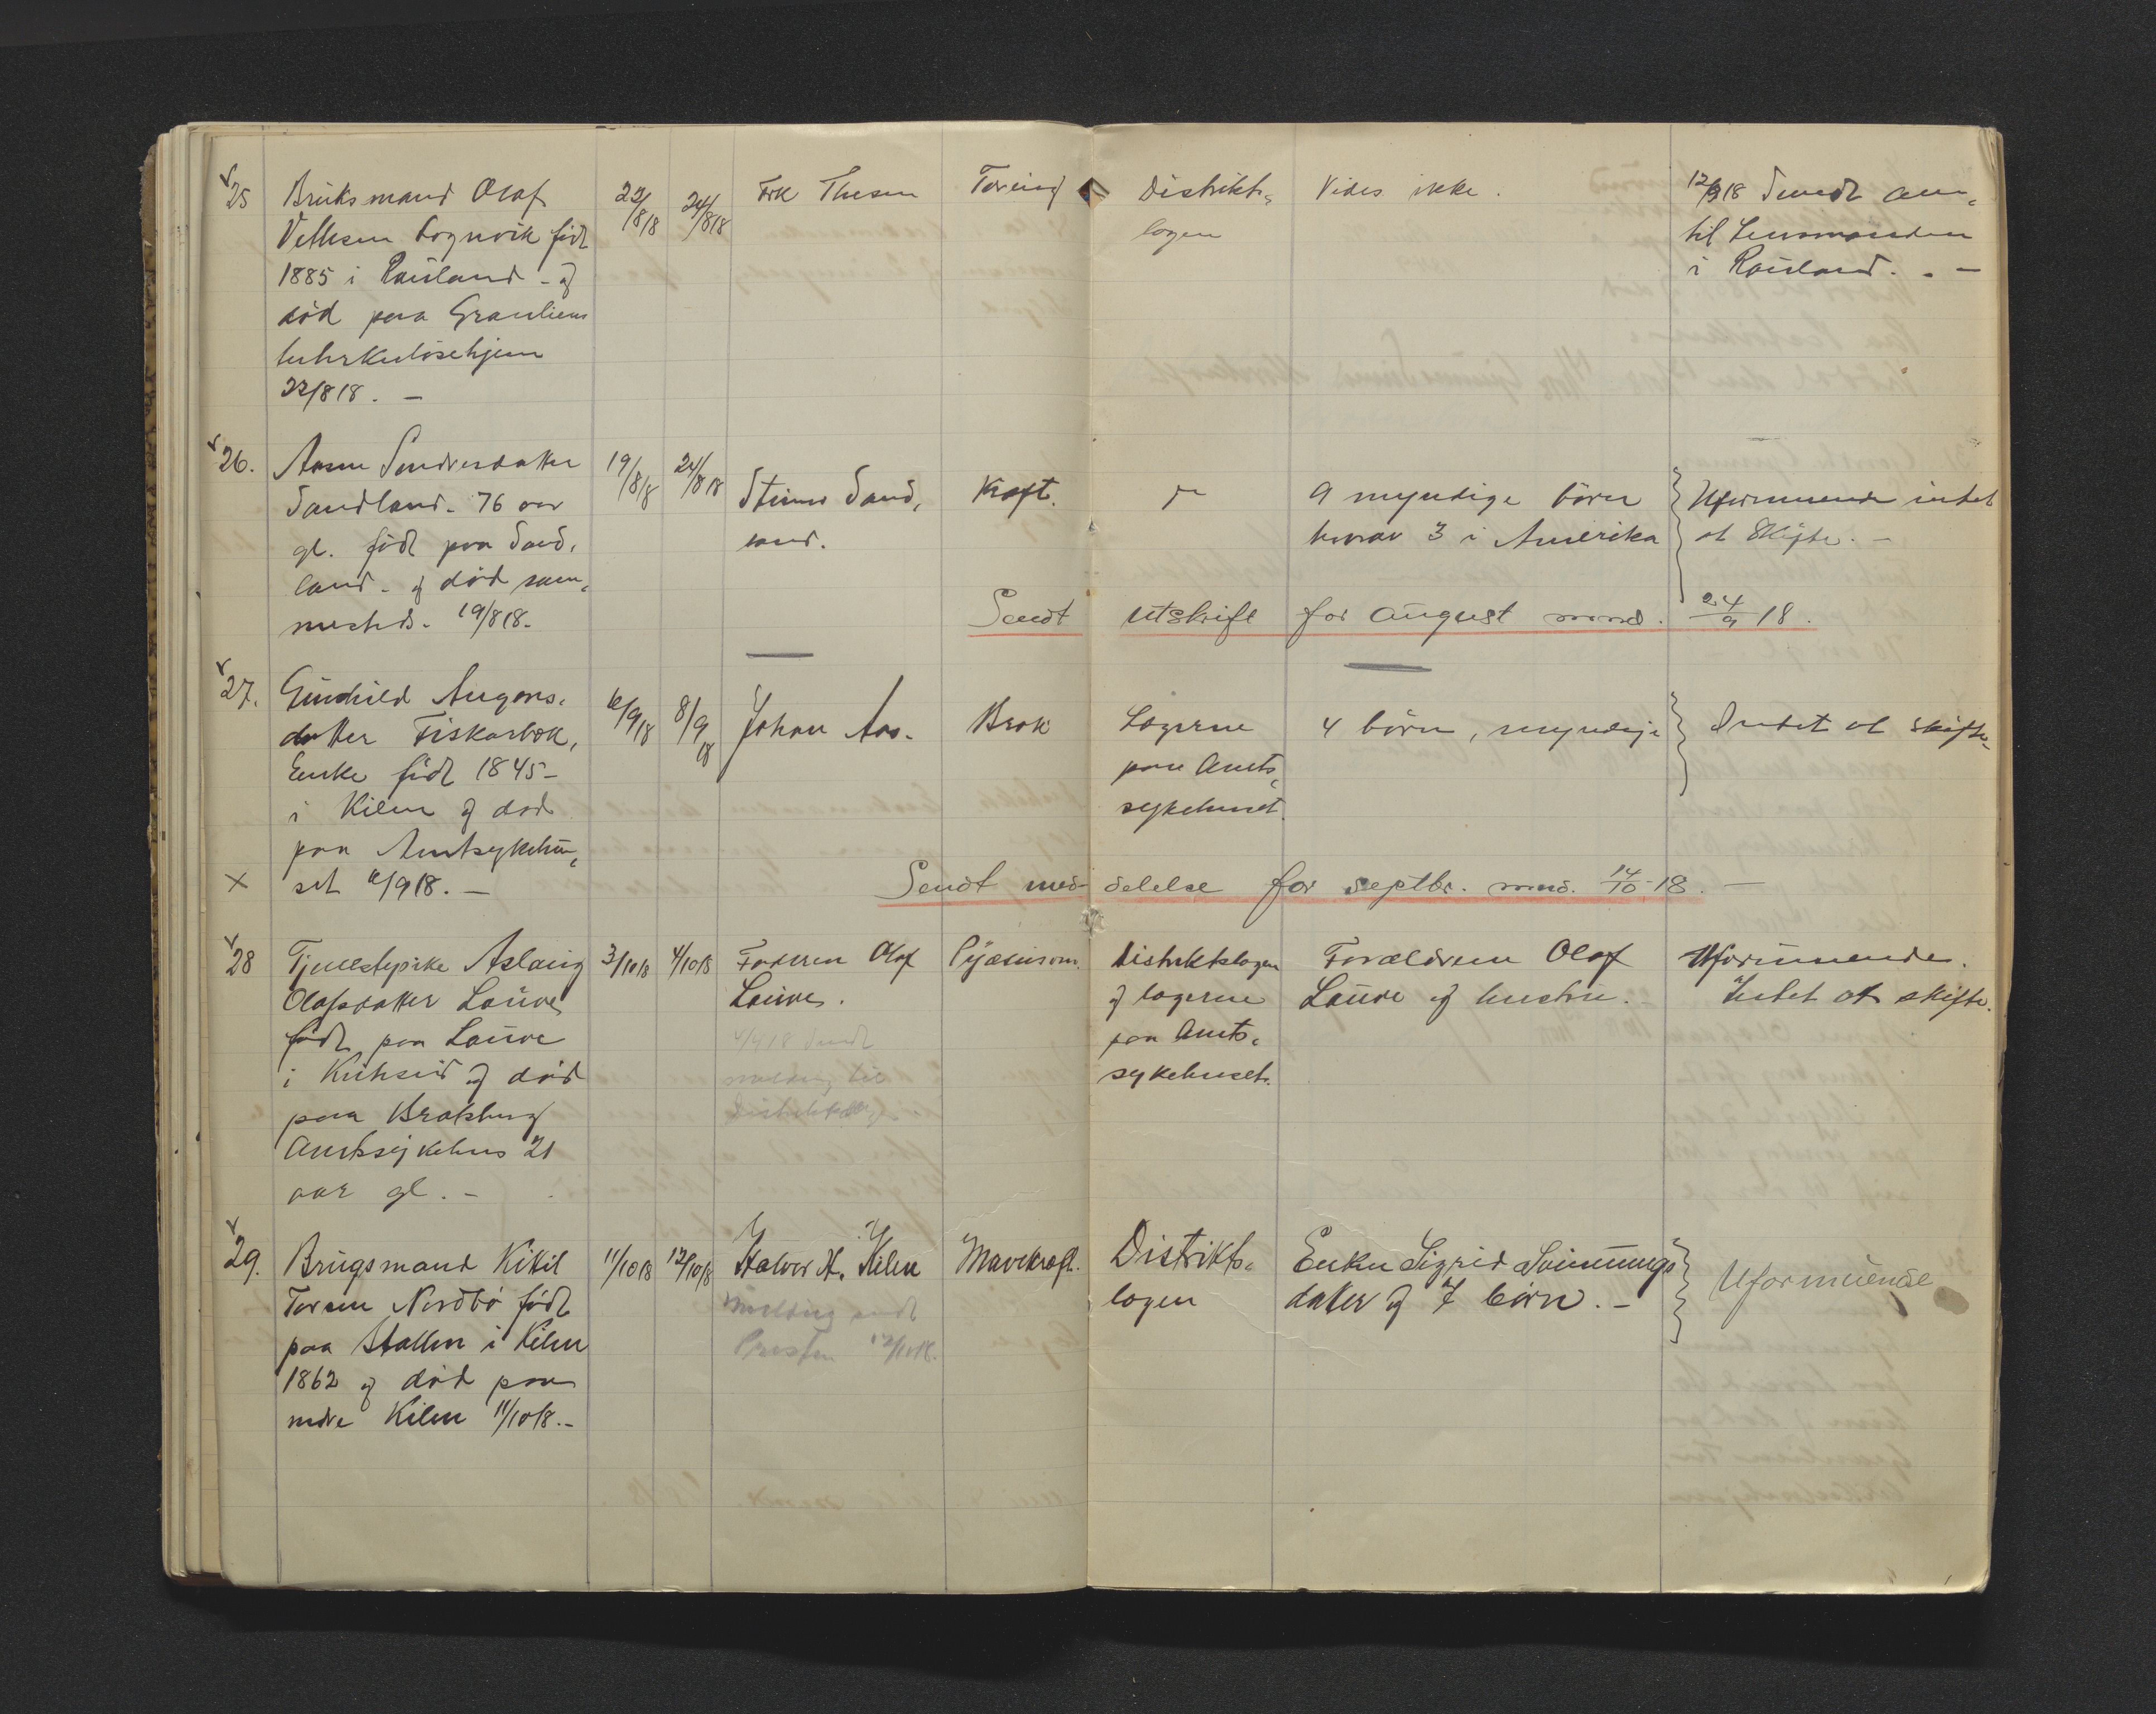 25 Bruksmand Olaf 22/8 18 24/8 18 Frk Thesen Tæring Distrikts- Vides ikke. 12/9 18 Sendt an-
Vetlesen Lognvik født lægen til Lensmanden
1885 i Rauland - og i Rauland. . -
død paa Granliens
tuberkulosehjem
22/8 18. -
26. Aasne Sondresdatter 19/8 18 24/8 18 Steinar Sand- Kræft. 9 myndige børn Uformuende intet
Sandland. 76 aar land. hvorav 3 i Amerika at skifte. -
gl. født paa Sand-
land. og død sam-
mesteds. 19/8 18.
Sendt utskrift for august mnd. 24/9 18.
27. Gunhild Augons- 6/9 18 8/9 18 Johan Aas. Brok Lægerne 4 børn, myndige Intet at skifte.
datter Fiskarbæk, paa Amts-
Enke født 1845 - sykehuset.
i Kilen og død
paa Amtsykehu-
set 6/9 18. -
Sendt meddelelse for septbr. mnd. 14/10 18. -
28 Tjenestepike Aslaug 3/10 18 4/10 18 Faderen Olaf Distriktslægen Forældrene Olaf Uformuende.
Olafsdatter Lauve Lauve. og lægerne Lauve og hustru. Intet at skifte.
født paa Lauve 4/ 18 Sendt paa Amts-
i Kviteseid og død melding til sykehuset.
paa Broksberg
Amtssykehus 21
aar gl. -
29. Brugsmand Kitil 11/10 18 12/10 18 Halvor H. Kilen Mavekræft. Distrikts- Enken Sigrid Svinungs- Uformuende
Torsen Nordbø født Melding sendt lægen datter og 7 børn. -
paa Stallen i Kilen Presten 12/10 18.
1862 og død paa
nedre Kilen 11/10 18. -